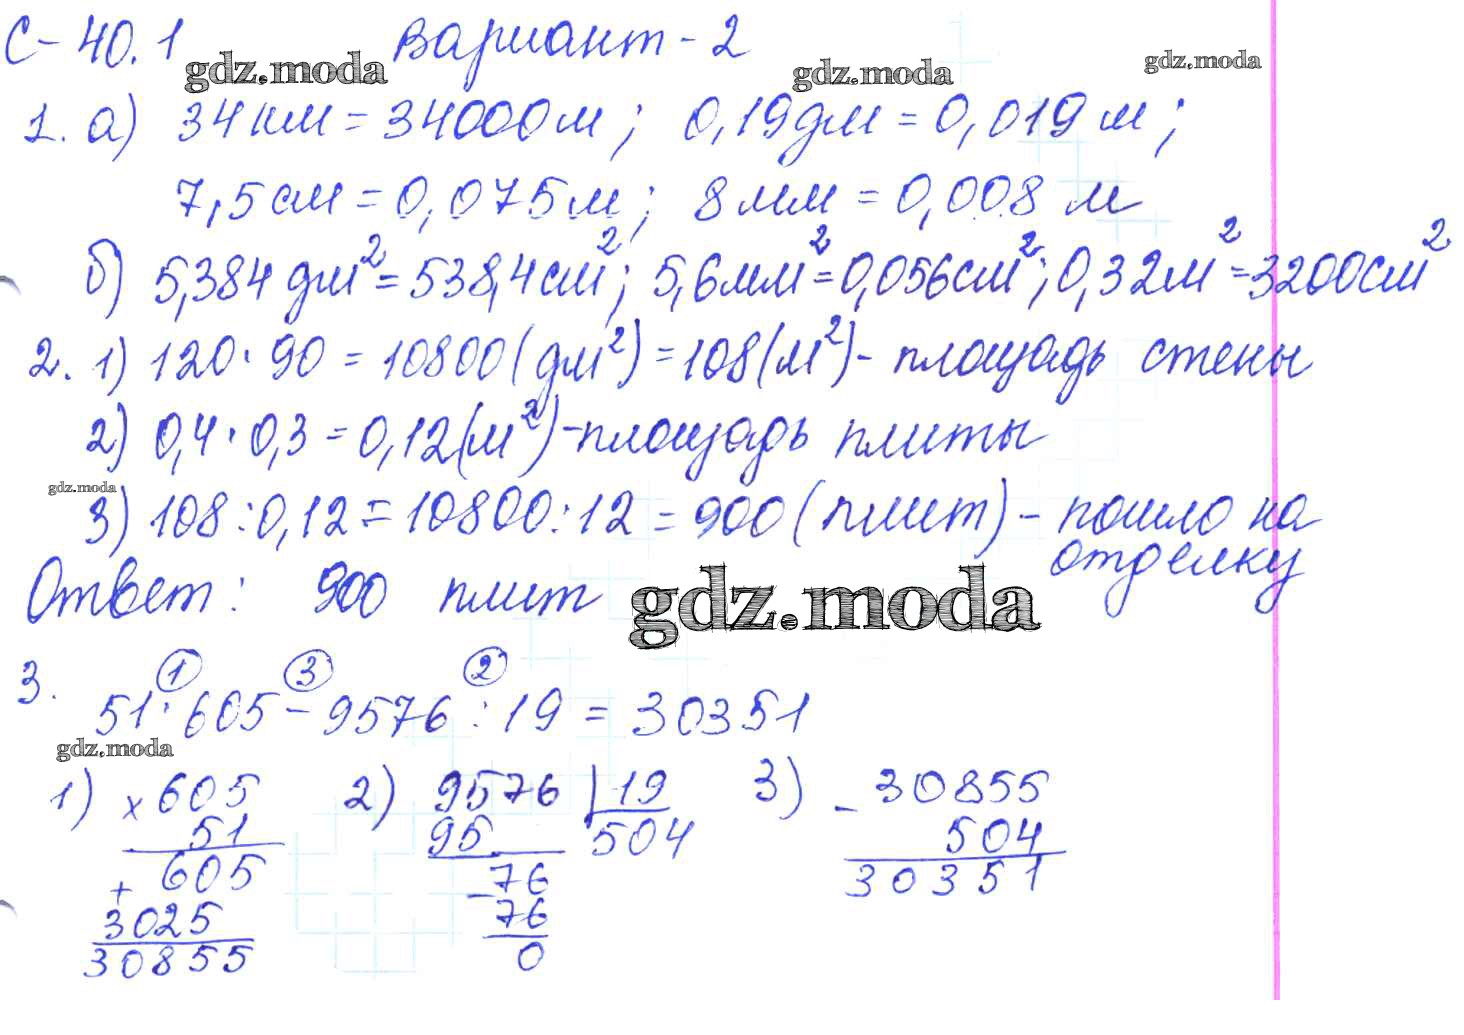 С-40.1 Вариант-2
gdz.moda gdz.moda gdz.moda
1. а) 34км = 34000м; 0,19дм = 0,019м;
7,5см = 0,075м; 8мм = 0,008 м
б) 5,384 дм² = 538,4см²; 5,6мм² = 0,056см²; 0,32м² = 3200см²
2. 1) 120 · 90 = 10800(дм²) = 108(м²) - площадь стены
2) 0,4 · 0,3 = 0,12(м²) - площадь плиты
gdz.moda
3) 108 : 0,12 = 10800 : 12 = 900 (плит) - пошло на
отделку
Ответ: 900 плит
gdz.moda
3. 1 3 2
51 · 605 - 9576 : 19 = 30351
gdz.moda
1) × 605 2) 9576 19 3) - 30855
51 95 504 504
+ 605 - 76 30351
3025 76
30855 0